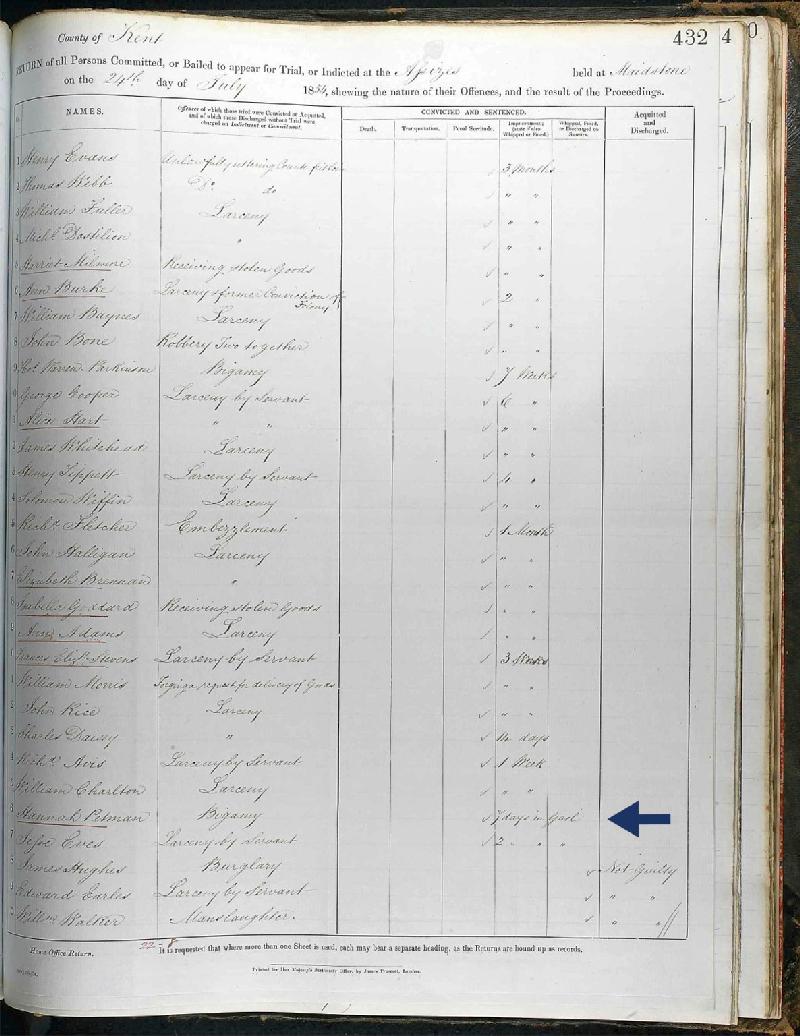 County of Kent
432 4 0
RETURN of all Persons Committed, or Bailed to appear for Trial, or Indicted at the Assizes held at Maidstone
on the 24th day of July 185 , shewing the nature of their Offences, and the result of the Proceedings.
NAMES. Offences of which those tried were Convicted or Acquitted, and of which those Discharged without Trial were charged on Indictment or Commitment. CONVICTED AND SENTENCED. Acquitted and Discharged.
Death. Transportation. Penal Servitude. Imprisonment (state if also Whipped or Fined). Whipped, Fined, or Discharged on Sureties.
Henry Evans Unlawfully uttering Counterfeit Coin 3 Months
Thomas Webb Do. do " "
William Fuller Larceny " "
Michl. Dostilion " " "
Harriet Milmore Receiving stolen Goods " "
Ann Burke Larceny & former Conviction of Felony 2 "
William Baynes Larceny " "
John Bone Robbery Two together " "
Warren Parkinson Bigamy 7 Weeks
George Cooper Larceny by Servant 6 "
Alice Hart " " " "
James Whitehead Larceny " "
Henry Tippett Larceny by Servant 4 "
Solomon Wiffin Larceny " "
Richd. Fletcher Embezzlement 1 Month
John Hallegan Larceny " "
Elizabeth Brennan " " "
Isabella Goddard Receiving stolen Goods " "
Ann Adams Larceny " "
Frances Elizth. Stevens Larceny by Servant 3 Weeks
William Morris Forging a request for delivery of Goods " "
John Rice Larceny " "
Charles Dawey " 14 days
Richd. Avis Larceny by Servant 1 Week
William Charlton Larceny " "
Hannah Petman Bigamy 7 days in Gaol
Jesse Eves Larceny by Servant 2 " " "
James Hughes Burglary Not Guilty
Edward Earles Larceny by Servant " "
Willm. Walker Manslaughter. " "
Home Office Return. 22-8 It is requested that where more than one Sheet is used, each may bear a separate heading, as the Returns are bound up as records.
Printed for Her Majesty's Stationery Office, by James Truscott, London.